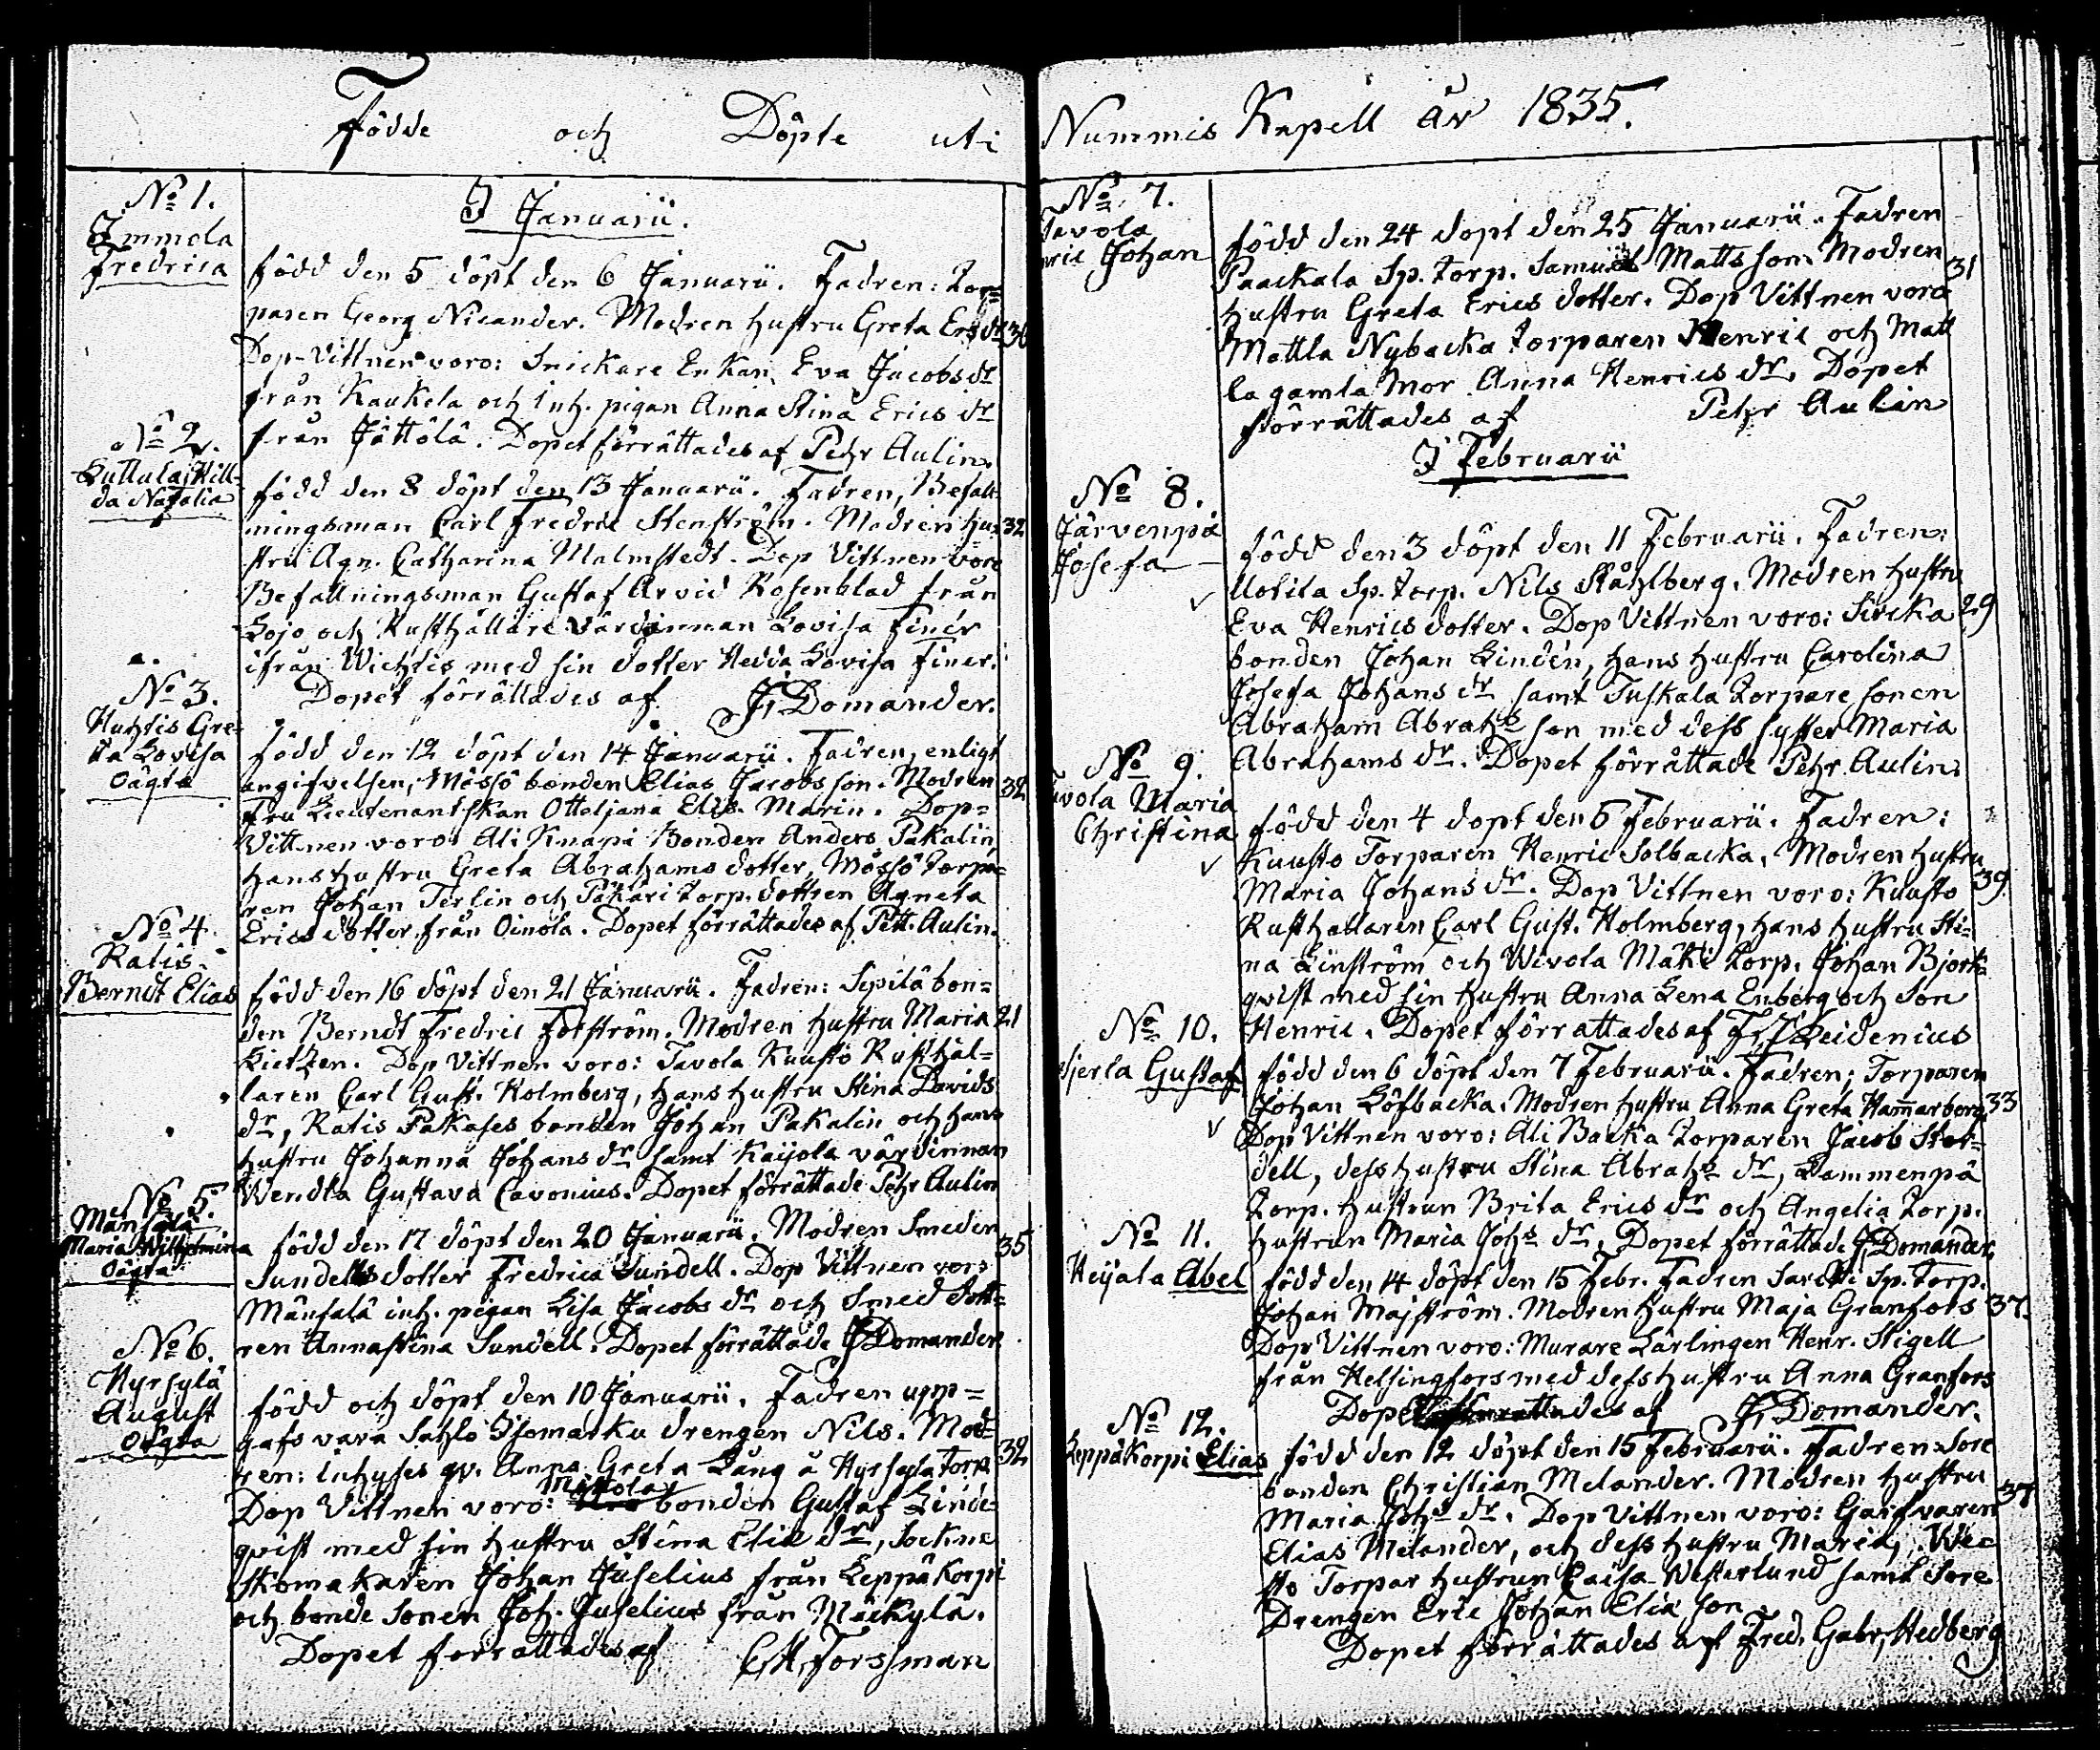 Födde och Döpte uti
N:o 1.
Immola
Fredrica
I Januarii.
född den 5 döpt den 6 Januarii. Fadren: Tor=
paren Georg Nicander. Modren hustru Greta Ersdr 36
Dop-Vittnen voro: Snickare Enkan Eva Jacobs dr
från Kaukela och inh. pigan Anna Stina Erics dr
från Jättölä. Dopet förrättades af Pehr Aulin.
N:o 2.
Huttula Hill-
da Natalia
född den 8 döpt den 13 Januarii. Fadren, Befall-
ningsman Carl Fredric Stenström. Modren hu- 32
stru Agn. Catharina Malmstedt. Dop Vittnen voro
Befallningsman Gustaf Arvid Rosenblad från
Lojo och Rusthållare Värdinnan Lovisa Finér
ifrån Wichtis med sin dotter Hedda Lovisa Finer.
Dopet förrättades af J. Domander.
N:o 3.
Huhtis Gre-
ta Lovisa
Oägta
född den 12 döpt den 14 Januarii. Fadren, enligt
angifvelsen, Mössö bonden Elias Jacobsson. Modren 32
Fru Lieutenantskan Ottoljana Elis. Marin. Dop=
Vittnen voro: Ali Knapi Bonden Anders Pakalin
hans hustru Greta Abrahams dotter, Mössö torpa=
ren Johan Terlin och Päkäri torp. dottren Agneta
Erics dotter från Oinola. Dopet förrättades af Pett. Aulin.
N:o 4.
Ratis
Berndt Elias
född den 16 döpt den 21 Januarii. Fadren: Sepilä bon=
den Berndt Fredric Forström. Modren hustru Maria 21
Lietzen. Dop Vittnen voro: Tavola Kuusto Rusthål=
laren Carl Gust. Holmberg, hans hustru Stina Davids
dr, Ratis Pakases bonden Johan Pakalin och hans
hustru Johanna Johans dr samt Kaijola värdinnan
Wendla Gustava Cavonius. Dopet förrättade Pehr Aulin
N:o 5.
Mänsälä
Maria Wilhelmina
Oägta
född den 17 döpt den 20 Januarii. Modren Smeden 35
Sundells dotter Fredrica Sundell. Dop Vittnen voro
Mänsälä inh. pigan Lisa Jacobs dr och Smed dott=
ren Annastina Sundell. Dopet förrättade J Domander
N:o 6.
Hyrsylä
August
Oägta
född och döpt den 10 Januarii. Fadren upp=
gafs vara Sahlo Isomarku drengen Nils. Mod=
ren: inhyses qv. Anna Greta Lång å Hyrsylä Torp. 32
Dop Vittnen voro: Mikola bonden Gustaf Linde=
qvist med sin hustru Stina Elie dr, Sockne
Skomakaren Johan Juselius från Leppäkorpi
och bonde Sonen Joh. Juselius från Mäckylä.
Dopet förrättades af C H Forssman
Nummis Kapell år 1835.
N:o 7.
Tavola
Johan
född den 24 döpt den 25 Januarii. Fadren
Paackala Sp. torp. Samuel Mattsson. Modren 31
hustru Greta Erics dotter. Dop Vittnen voro
Mattla Nybacka torparen Henric och Matt
la gamla Mor Anna Henrics dr. Döpet
förrättades af Pehr Aulin
I Februarii
N:o 8.
Järvenpä
Josefa
född den 3 döpt den 11 Februarii. Fadren:
Uotila Sp. torp. Nils Ståhlberg. Modren hustru
Eva Henrics dotter. Dop Vittnen voro: Siecka 29
bonden Johan Lindén, hans hustru Carolina
Josefa Johans dr samt Tuskala torpare sonen
Abraham Abrah:s son med dess syster Maria
Abrahams dr. Dopet förrättade Pehr Aulin.
N:o 9.
Maria
Christina
född den 4 döpt den 6 Februarii. Fadren:
Kuusto Torparen Henric Solbacka, Modren hustru
Maria Johans dr. Dop Vittnen voro: Kuusto 39.
Rusthallaren Carl Gust. Holmberg, hans hustru Sti=
na Linström och Wivola Mäki torp. Johan Björk=
qvist med sin hustru Anna Lena Enberg och Son
Henric. Dopet förrättades af Heidenius
N:o 10.
Gustaf
född den 6 döpt den 7 Februarii. Fadren; Torparen
Johan Löfbacka. Modren hustru Anna Greta Hammarberg 33
Dop Vittnen voro: Ali Backa torparen Jacob Stor=
dell, dess hustru Stina Abrah:s dr, Lammenpä
torp. hustrun Brita Erics dr och Angelia torp.
hustrun Maria Joh:s dr. Dopet förrättade J Domander
N:o 11.
Heijala Abel
född den 14 döpt den 15 Febr. Fadren Sarcki Sp. torp.
Johan Majström. Modren hustru Maja Granfors 37.
Dop Vittnen voro: Murare Lärlingen Henr. Stigell
från Helsingfors med dess hustru Anna Granfors
Dopet förrättades af J. Domander.
N:o 12.
Leppäkorpi Elias
född den 12 döpt den 15 Februarii. Fadren: Sore
bonden Christian Melander. Modren hustru 37
Maria Joh:s dr. Dop Vittnen voro: Garfvaren
Elias Melander, och dess hustru Maria, Wec
Torpar hustrun Caisa Westerlund samt Sore
Drengen Eric Johan Elia son
Dopet förrättades af Fred. Gabr. Hedberg